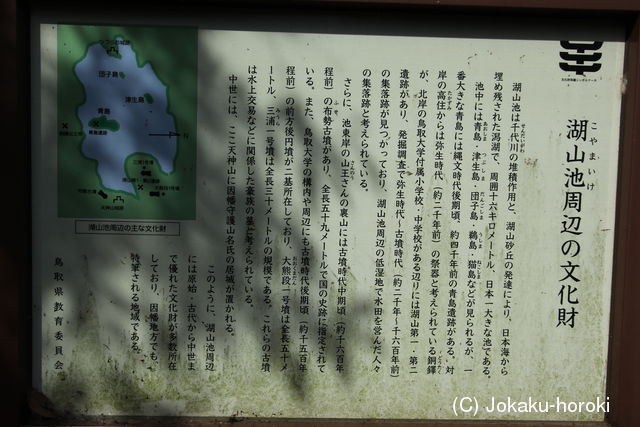 湖山池周辺の文化財
こやまいけ
湖山池は千代川の堆積作用と、湖山砂丘の発達により、日本海から
埋め残された潟湖で、周囲十六キロメートル、日本一大きな池である。
池中には青島・津生島・団子島・鵜島・猫島などが見られるが、一
番大きな青島には縄文時代後期頃、約四千年前の青島遺跡がある。対
岸の高住からは弥生時代（約二千年前）の祭器と考えられている銅鐸
が、北岸の鳥取大学付属小学校、中学校がある辺りには湖山第一・第二
遺跡があり、発掘調査で弥生時代～古墳時代（約二千年～千六百年前）
の集落跡が見つかっており、湖山池周辺の低湿地で水田を営んだ人々
の集落跡と考えられている。
さらに、池東岸の山王さんの裏山には古墳時代中期頃（約千六百年
程前）の布勢古墳があり、全長五十九メートルで国の史跡に指定されて
いる。また、鳥取大学の構内や周辺にも古墳時代後期頃（約千五百年
程前）の前方後円墳が二基所在しており、大熊段一号墳は全長五十メ
ートル、三浦一号墳は全長三十メートルの規模である。これらの古墳
は水上交易などに関係した豪族の墓と考えられている。
中世には、ここ天神山に因幡守護山名氏の居城が置かれる。
このように、湖山池周辺
には原始・古代から中世ま
で優れた文化財が多数所在
しており、因幡地方でも、
特筆される地域である。
鳥取県教育委員会
団子島
津生島
青島
青島遺跡
湖山池周辺の主な文化財
(C) Jokaku-horoki